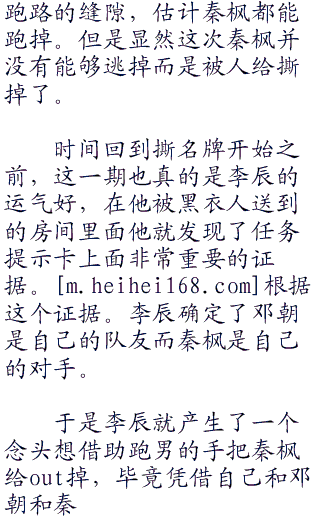 跑路的缝隙，估计秦枫都能
跑掉。但是显然这次秦枫并
没有能够逃掉而是被人给撕
掉了。
时间回到撕名牌开始之
前，这一期也真的是李辰的
运气好，在他被黑衣人送到
的房间里面他就发现了任务
提示卡上面非常重要的证
据。[m.heihei168.com]根据
这个证据。李辰确定了邓朝
是自己的队友而秦枫是自己
的对手。
于是李辰就产生了一个
念头想借助跑男的手把秦枫
给out掉，毕竟凭借自己和邓
朝和秦